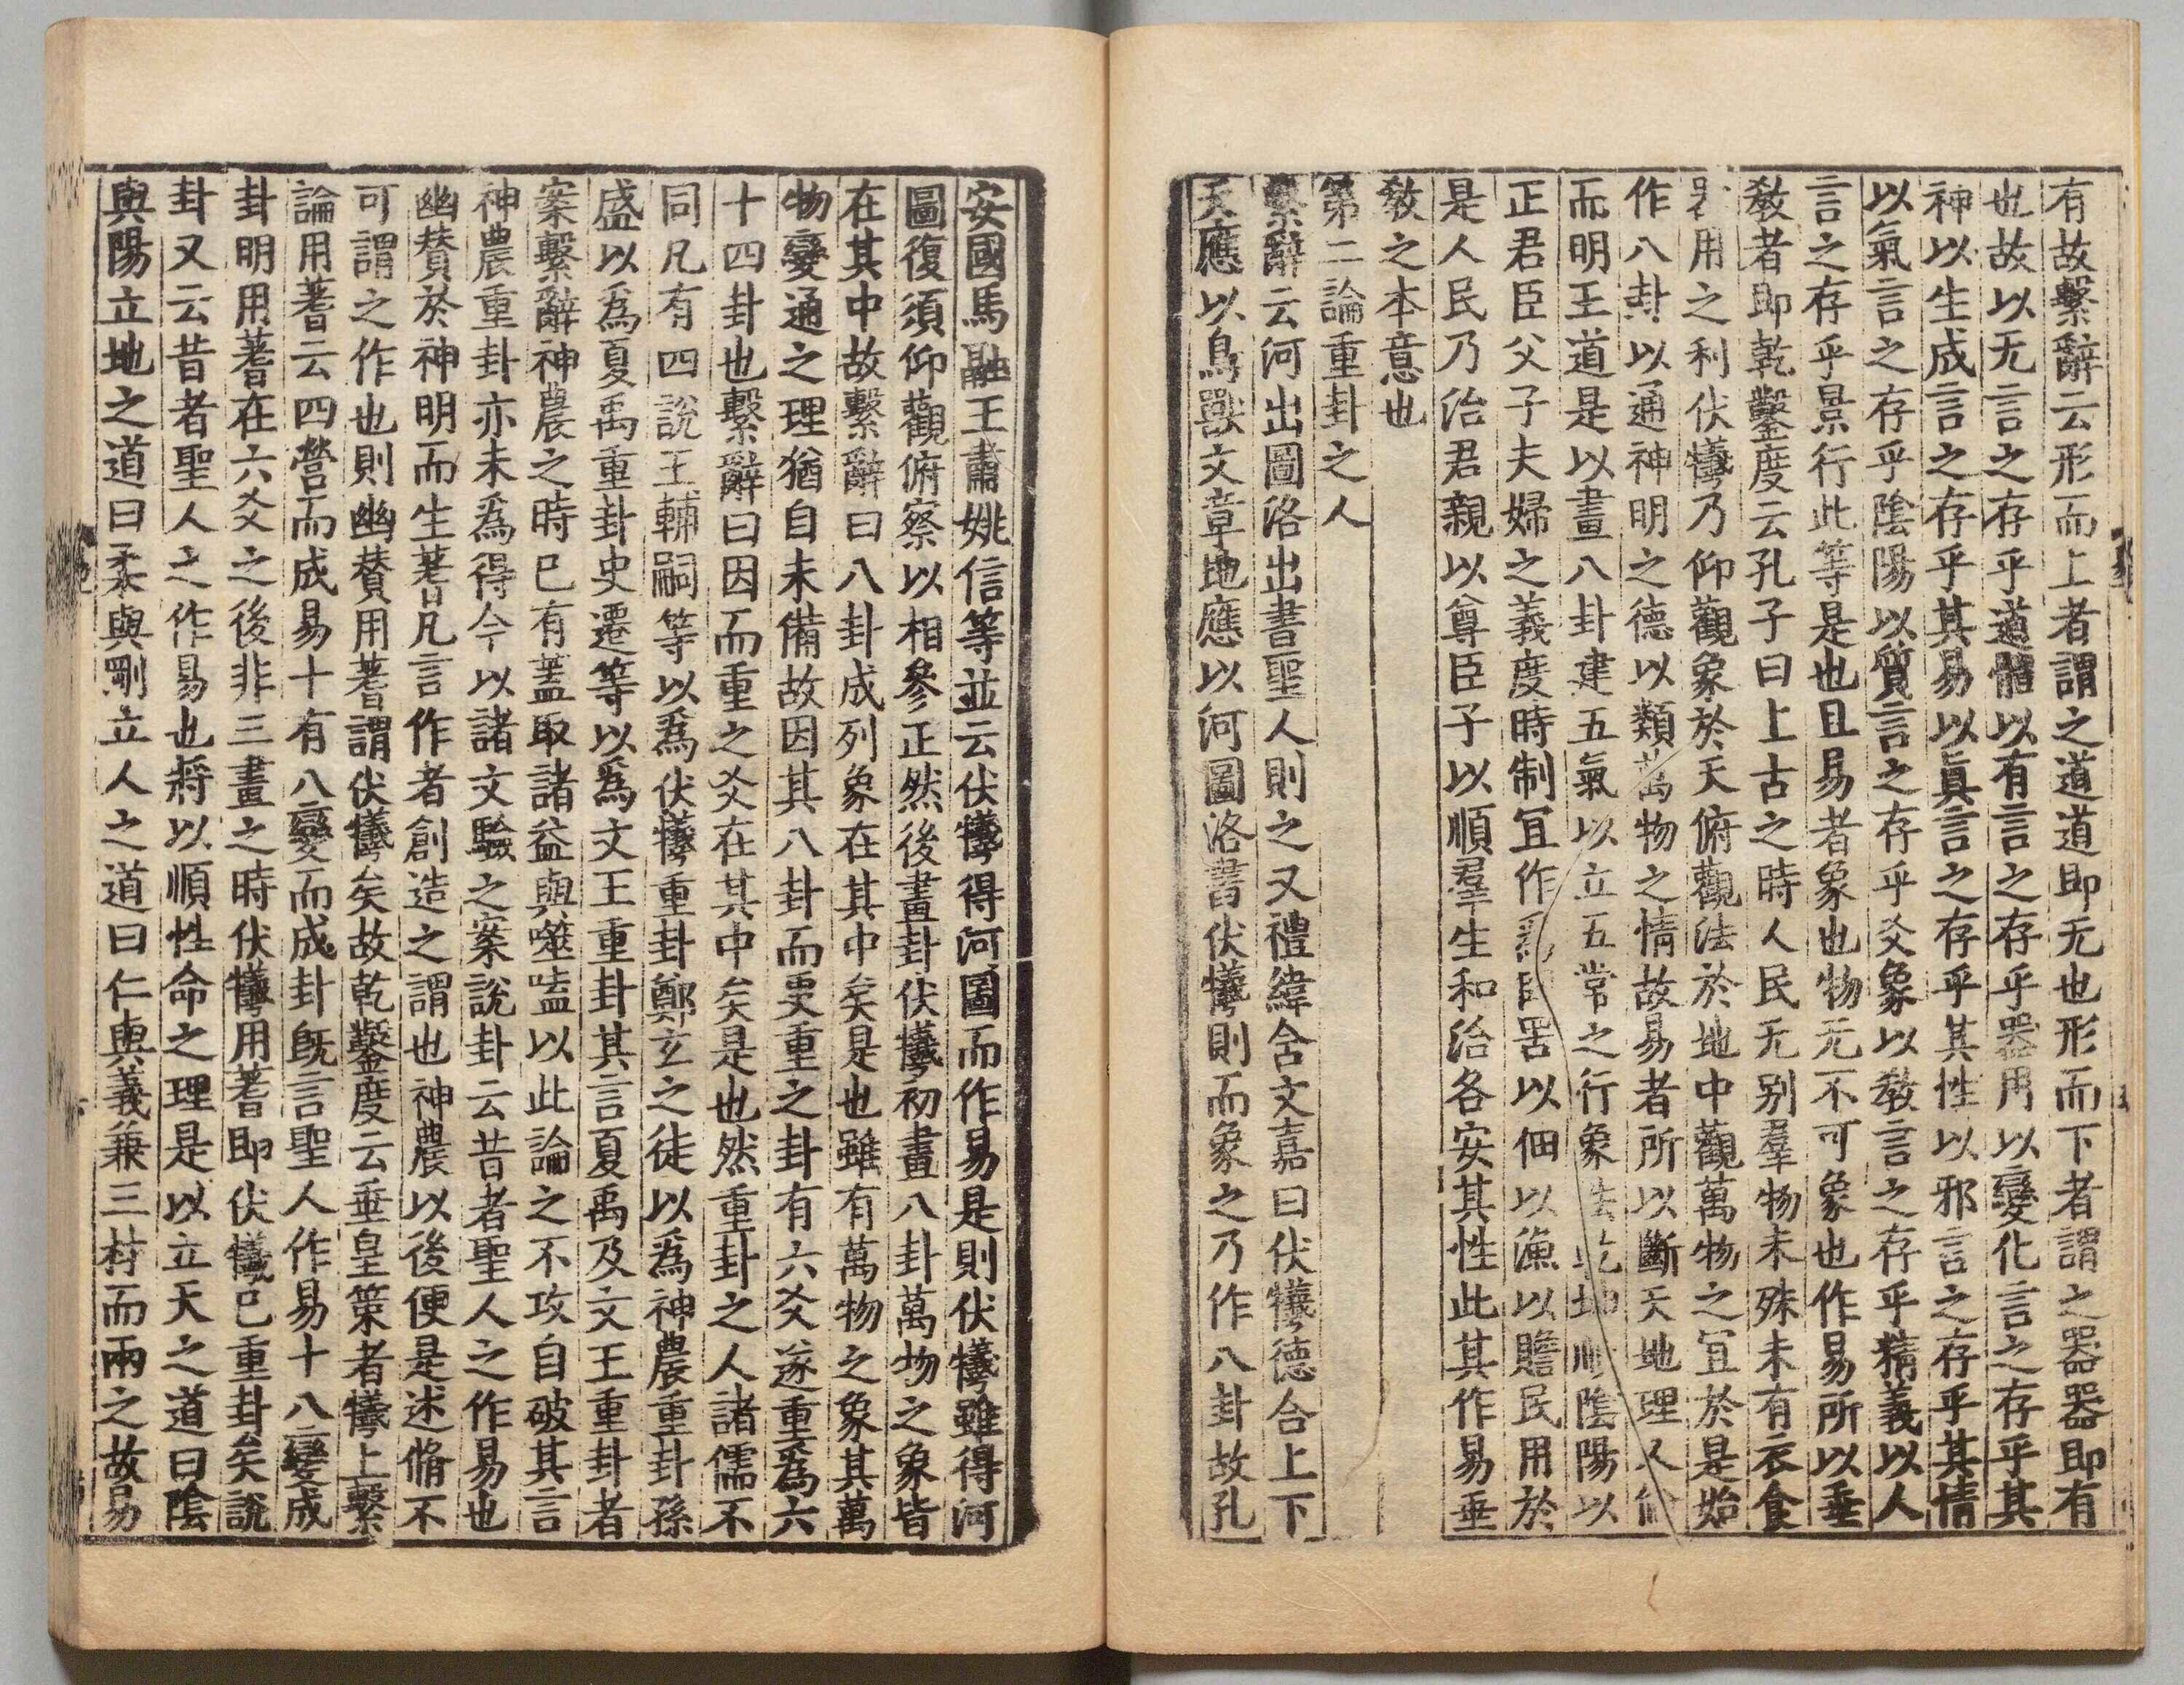 有故繫辭云形而上者謂之道道即无也形而下者謂之器器即有
也故以无言之存乎道體以有言之存乎器用以變化言之存乎其
神以生成言之存乎其易以眞言之存乎其性以邪言之存乎其情
以氣言之存乎陰陽以質言之存乎爻象以敎言之存乎精義以人
言之存乎景行此等是也且易者象也物无不可象也作易所以垂
敎者即乾鑿度云孔子曰上古之時人民无别羣物未殊未有衣食
器用之利伏犧乃仰觀象於天俯觀法於地中觀萬物之冝於是始
作八卦以通神明之德以類萬物之情故易者所以斷天地理人倫
而明王道是以畫八卦建五氣以立五常之行象法乾坤順陰陽以
正君臣父子夫婦之義度時制冝作爲罔罟以佃以漁以贍民用於
是人民乃治君親以尊臣子以順羣生和治各安其性此其作易垂
敎之本意也
第二論重卦之人
繫辭云河出圖洛出書聖人則之又禮緯含文嘉曰伏犧德合上下
天應以鳥獸文章地應以河圖洛書伏犧則而象之乃作八卦故孔
安國馬融王肅姚信等並云伏犧得河圖而作易是則伏犧雖得河
圖復須仰觀俯察以相參正然後畫卦伏犧初畫八卦萬物之象皆
在其中故繫辭曰八卦成列象在其中矣是也雖有萬物之象其萬
物變通之理猶自未備故因其八卦而更重之卦有六爻遂重爲六
十四卦也繫辭曰因而重之爻在其中矣是也然重卦之人諸儒不
同凡有四說王輔嗣等以爲伏犧重卦鄭玄之徒以爲神農重卦孫
盛以爲夏禹重卦史遷等以爲文王重卦其言夏禹及文王重卦者
案繫辭神農之時已有蓋取諸益與噬嗑以此論之不攻自破其言
神農重卦亦未爲得今以諸文驗之案說卦云昔者聖人之作易也
幽賛於神明而生蓍凡言作者創造之謂也神農以後便是述脩不
可謂之作也則幽賛用蓍謂伏犧矣故乾鑿度云垂皇策者犧上繫
論用蓍云四營而成易十有八變而成卦旣言聖人作易十八變成
卦明用蓍在六爻之後非三畫之時伏犧用蓍即伏犧已重卦矣說
卦又云昔者聖人之作易也將以順性命之理是以立天之道曰陰
與陽立地之道曰柔與剛立人之道曰仁與義兼三材而兩之故易